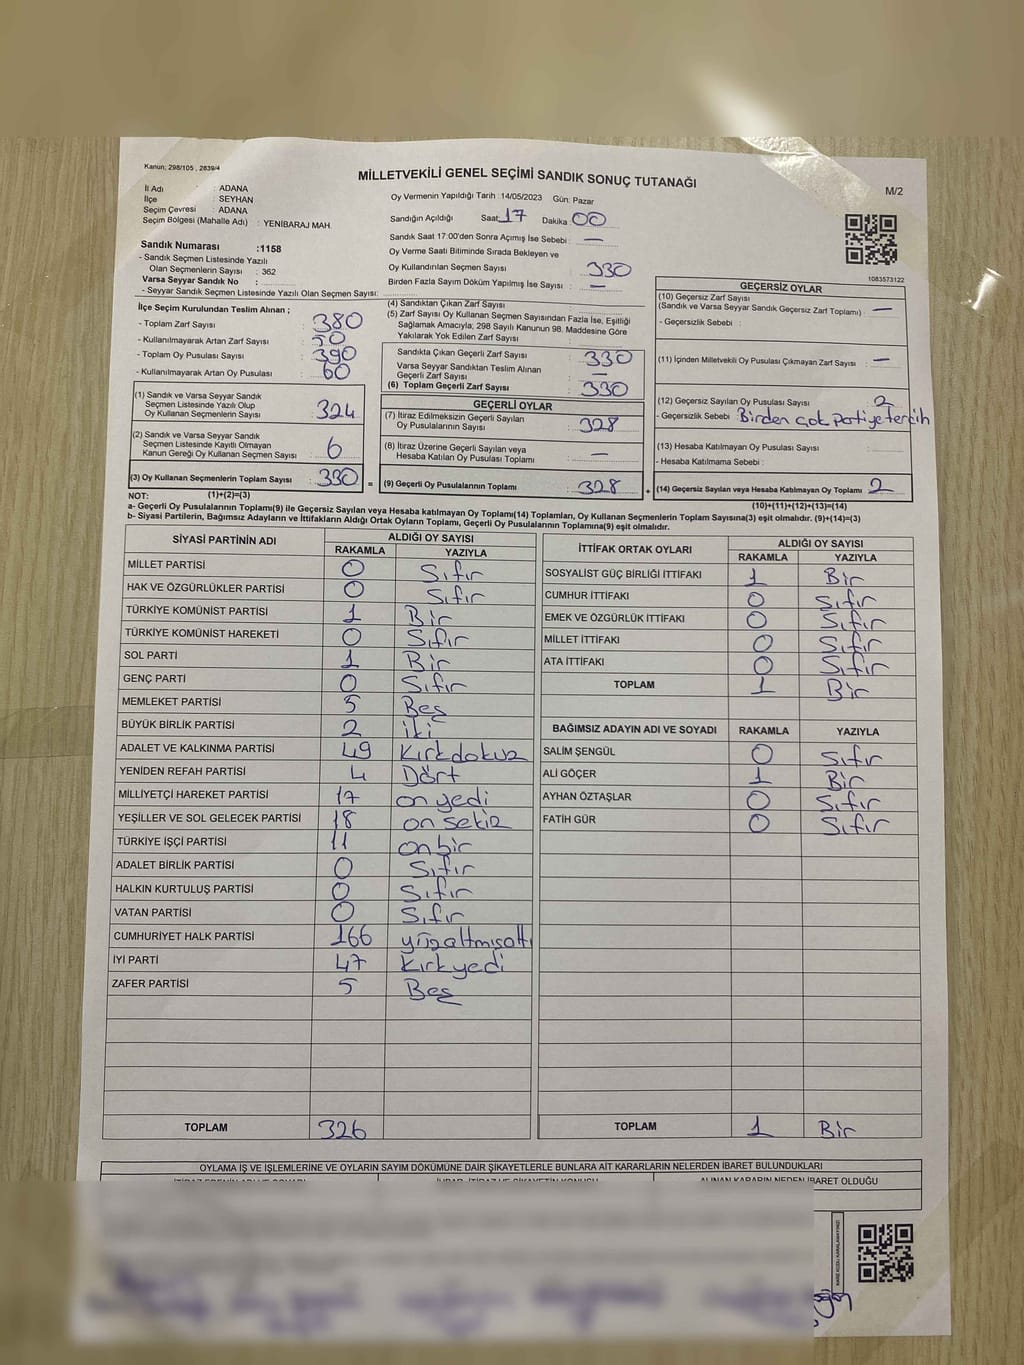 Kanun: 298/105 , 2839/4
MİLLETVEKİLİ GENEL SEÇİMİ SANDIK SONUÇ TUTANAĞI
M/2
İl Adı : ADANA
İlçe : SEYHAN
Seçim Çevresi : ADANA
Seçim Bölgesi (Mahalle Adı) : YENİBARAJ MAH.
Oy Vermenin Yapıldığı Tarih : 14/05/2023 Gün: Pazar
Sandığın Açıldığı Saat: 17 Dakika: 00
Sandık Saat 17:00'den Sonra Açımış İse Sebebi : —
Oy Verme Saati Bitiminde Sırada Bekleyen ve
Oy Kullandırılan Seçmen Sayısı : 330
Birden Fazla Sayım Döküm Yapılmış İse Sayısı : —
Sandık Numarası :1158
- Sandık Seçmen Listesinde Yazılı
Olan Seçmenlerin Sayısı : 362
Varsa Seyyar Sandık No :
- Seyyar Sandık Seçmen Listesinde Yazılı Olan Seçmen Sayısı:
İlçe Seçim Kurulundan Teslim Alınan ;
- Toplam Zarf Sayısı : 380
- Kullanılmayarak Artan Zarf Sayısı : 50
- Toplam Oy Pusulası Sayısı : 390
- Kullanılmayarak Artan Oy Pusulası : 60
(1) Sandık ve Varsa Seyyar Sandık
Seçmen Listesinde Yazılı Olup
Oy Kullanan Seçmenlerin Sayısı : 324
(2) Sandık ve Varsa Seyyar Sandık
Seçmen Listesinde Kayıtlı Olmayan
Kanun Gereği Oy Kullanan Seçmen Sayısı : 6
(3) Oy Kullanan Seçmenlerin Toplam Sayısı : 330
(4) Sandıktan Çıkan Zarf Sayısı :
(5) Zarf Sayısı Oy Kullanan Seçmen Sayısından Fazla İse, Eşitliği
Sağlamak Amacıyla; 298 Sayılı Kanunun 98. Maddesine Göre
Yakılarak Yok Edilen Zarf Sayısı :
Sandıkta Çıkan Geçerli Zarf Sayısı : 330
Varsa Seyyar Sandıktan Teslim Alınan
Geçerli Zarf Sayısı : —
(6) Toplam Geçerli Zarf Sayısı : 330
GEÇERLİ OYLAR
(7) İtiraz Edilmeksizin Geçerli Sayılan
Oy Pusulalarının Sayısı : 328
(8) İtiraz Üzerine Geçerli Sayılan veya
Hesaba Katılan Oy Pusulası Toplamı : —
= (9) Geçerli Oy Pusulalarının Toplamı : 328
1083573122
GEÇERSİZ OYLAR
(10) Geçersiz Zarf Sayısı
(Sandık ve Varsa Seyyar Sandık Geçersiz Zarf Toplamı) : —
- Geçersizlik Sebebi :
(11) İçinden Milletvekili Oy Pusulası Çıkmayan Zarf Sayısı : —
(12) Geçersiz Sayılan Oy Pusulası Sayısı : 2
- Geçersizlik Sebebi : Birden çok partiye tercih
(13) Hesaba Katılmayan Oy Pusulası Sayısı :
- Hesaba Katılmama Sebebi :
+ (14) Geçersiz Sayılan veya Hesaba Katılmayan Oy Toplamı : 2
NOT: (1)+(2)=(3) (10)+(11)+(12)+(13)=(14)
a- Geçerli Oy Pusulalarının Toplamı(9) ile Geçersiz Sayılan veya Hesaba katılmayan Oy Toplamı(14) Toplamları, Oy Kullanan Seçmenlerin Toplam Sayısına(3) eşit olmalıdır. (9)+(14)=(3)
b- Siyasi Partilerin, Bağımsız Adayların ve İttifakların Aldığı Ortak Oyların Toplamı, Geçerli Oy Pusulalarının Toplamına(9) eşit olmalıdır.
SİYASİ PARTİNİN ADI ALDIĞI OY SAYISI
RAKAMLA YAZIYLA
MİLLET PARTİSİ 0 Sıfır
HAK VE ÖZGÜRLÜKLER PARTİSİ 0 Sıfır
TÜRKİYE KOMÜNİST PARTİSİ 1 Bir
TÜRKİYE KOMÜNİST HAREKETİ 0 Sıfır
SOL PARTİ 1 Bir
GENÇ PARTİ 0 Sıfır
MEMLEKET PARTİSİ 5 Beş
BÜYÜK BİRLİK PARTİSİ 2 iki
ADALET VE KALKINMA PARTİSİ 49 Kırkdokuz
YENİDEN REFAH PARTİSİ 4 Dört
MİLLİYETÇİ HAREKET PARTİSİ 17 on yedi
YEŞİLLER VE SOL GELECEK PARTİSİ 18 on sekiz
TÜRKİYE İŞÇİ PARTİSİ 11 on bir
ADALET BİRLİK PARTİSİ 0 Sıfır
HALKIN KURTULUŞ PARTİSİ 0 Sıfır
VATAN PARTİSİ 0 Sıfır
CUMHURİYET HALK PARTİSİ 166 yüzaltmışaltı
İYİ PARTİ 47 Kırkyedi
ZAFER PARTİSİ 5 Beş
TOPLAM 326
İTTİFAK ORTAK OYLARI ALDIĞI OY SAYISI
RAKAMLA YAZIYLA
SOSYALİST GÜÇ BİRLİĞİ İTTİFAKI 1 Bir
CUMHUR İTTİFAKI 0 Sıfır
EMEK VE ÖZGÜRLÜK İTTİFAKI 0 Sıfır
MİLLET İTTİFAKI 0 Sıfır
ATA İTTİFAKI 0 Sıfır
TOPLAM 1 Bir
BAĞIMSIZ ADAYIN ADI VE SOYADI RAKAMLA YAZIYLA
SALİM ŞENGÜL 0 Sıfır
ALİ GÖÇER 1 Bir
AYHAN ÖZTAŞLAR 0 Sıfır
FATİH GÜR 0 Sıfır
TOPLAM 1 Bir
OYLAMA İŞ VE İŞLEMLERİNE VE OYLARIN SAYIM DÖKÜMÜNE DAİR ŞİKAYETLERLE BUNLARA AİT KARARLARIN NELERDEN İBARET BULUNDUKLARI
ALINAN KARARIN NEDEN İBARET OLDUĞU